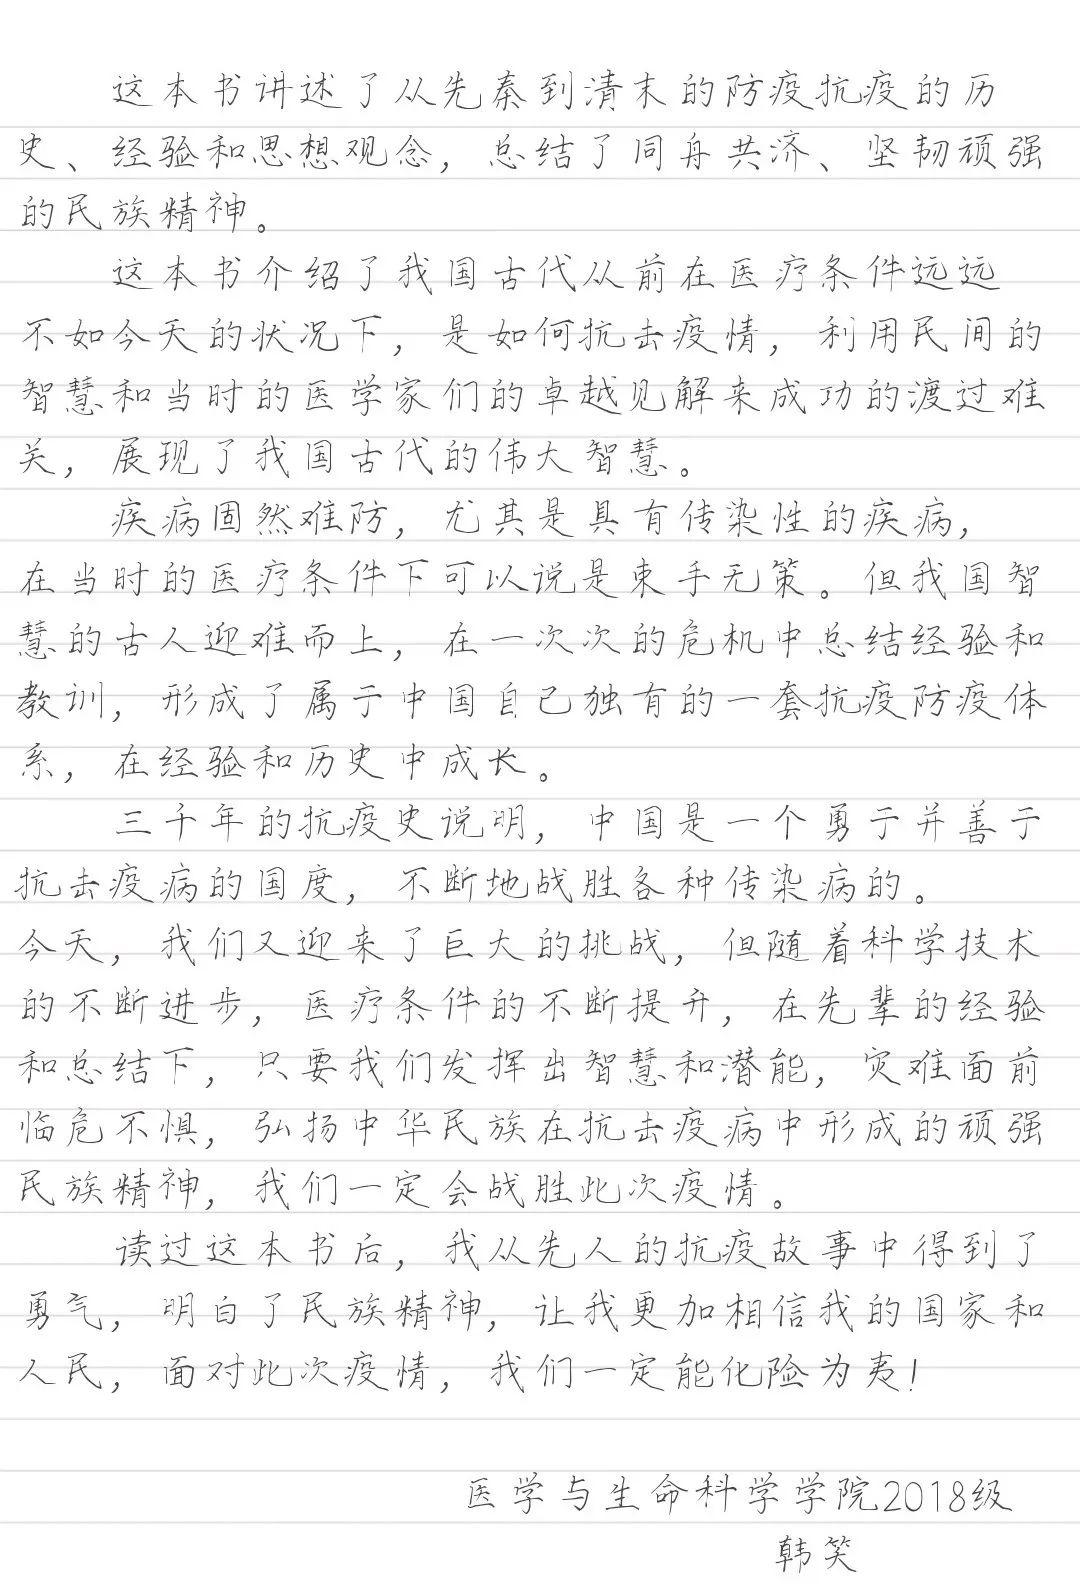 这本书讲述了从先秦到清末的防疫抗疫的历
史、经验和思想观念，总结了同舟共济、坚韧顽强
的民族精神。
这本书介绍了我国古代从前在医疗条件远远
不如今天的状况下，是如何抗击疫情，利用民间的
智慧和当时的医学家们的卓越见解来成功的渡过难
关，展现了我国古代的伟大智慧。
疾病固然难防，尤其是具有传染性的疾病，
在当时的医疗条件下可以说是束手无策。但我国智
慧的古人迎难而上，在一次次的危机中总结经验和
教训，形成了属于中国自己独有的一套抗疫防疫体
系，在经验和历史中成长。
三千年的抗疫史说明，中国是一个勇于并善于
抗击疫病的国度，不断地战胜各种传染病的。
今天，我们又迎来了巨大的挑战，但随着科学技术
的不断进步，医疗条件的不断提升，在先辈的经验
和总结下，只要我们发挥出智慧和潜能，灾难面前
临危不惧，弘扬中华民族在抗击疫病中形成的顽强
民族精神，我们一定会战胜此次疫情。
读过这本书后，我从先人的抗疫故事中得到了
勇气，明白了民族精神，让我更加相信我的国家和
人民，面对此次疫情，我们一定能化险为夷！
医学与生命科学学院2018级
韩笑